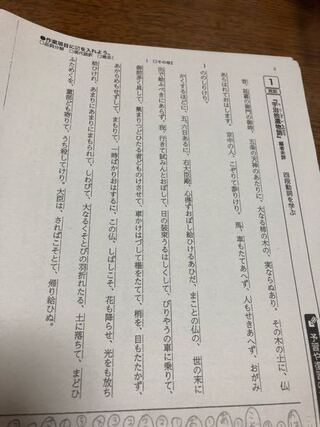 1
宇治拾遺物語
四段動詞を学ぶ
昔、延喜の御門の御時、五条の天神のあたりに、大なる柿の木の、実ならぬあり。その木の上に、仏
あらはれておはします。京中の人、こぞりて参りけり。馬、車もたてあへず、人もせきあへず、おがみ
ののしりけり。
かくするほどに、五六日あるに、右大臣殿、心得ずおぼし給ひけるあひだ、まことの仏の、世の末に
出で給ふべきにあらず、我、行きて試みんとおぼして、日の装束うるはしくして、びりやうの車に乗りて、
御前多く具して、集まりつどひたる者どものけさせて、車かけはづして榻をたてて、梢を、目もたたかず、
あからめもせずして、まもりて、一時ばかりおはするに、この仏、しばしこそ、花も降らせ、光をも放ち
給ひけれ、あまりにあまりにまもられて、しわびて、大なるくそとびの羽折れたる、土に落ちて、まどひ
ふためくを、童部ども寄りて、うち殺してけり。大臣は、さればこそとて、帰り給ひぬ。
●作業項目に☑を入れよう。
□品詞分解 □現代語訳
1 〔その他〕
予習や復習